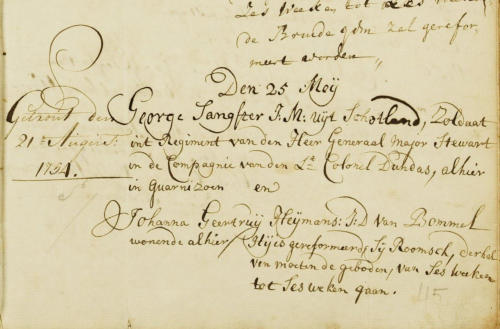 Ses Weeken tot
de Bruide qdm zal gerefor-
meert worden
Den 25 Moÿ
Getrout den
21en August:
1754.
George Sangster J:M: uijt Schotland, Zoldaat
int Regiment van den Heer Generaal Major Stewart
in de Compagnie van den Lt. Colonel Dundas, alhier
in Guarnizoen en
Johanna Geertruy Heymans: J:D van Bommel
wonende alhier / Hij is gereformeerd, Sij Roomsch, derhal
ven moeten de geboden, van Ses weeken
tot Ses weken gaan.
115